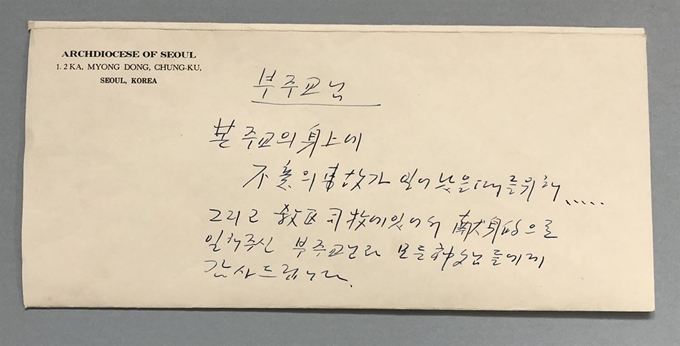 ARCHDIOCESE OF SEOUL
1. 2 KA, MYONG DONG, CHUNG-KU,
SEOUL, KOREA
부주교님
본 주교의 身上에
不意의 事故가 일어났을 때를 위해.....
그리고 教区司牧에 있어서 献身的으로
일해주신 부주교님과 모든 神父님들에게
감사드립니다.